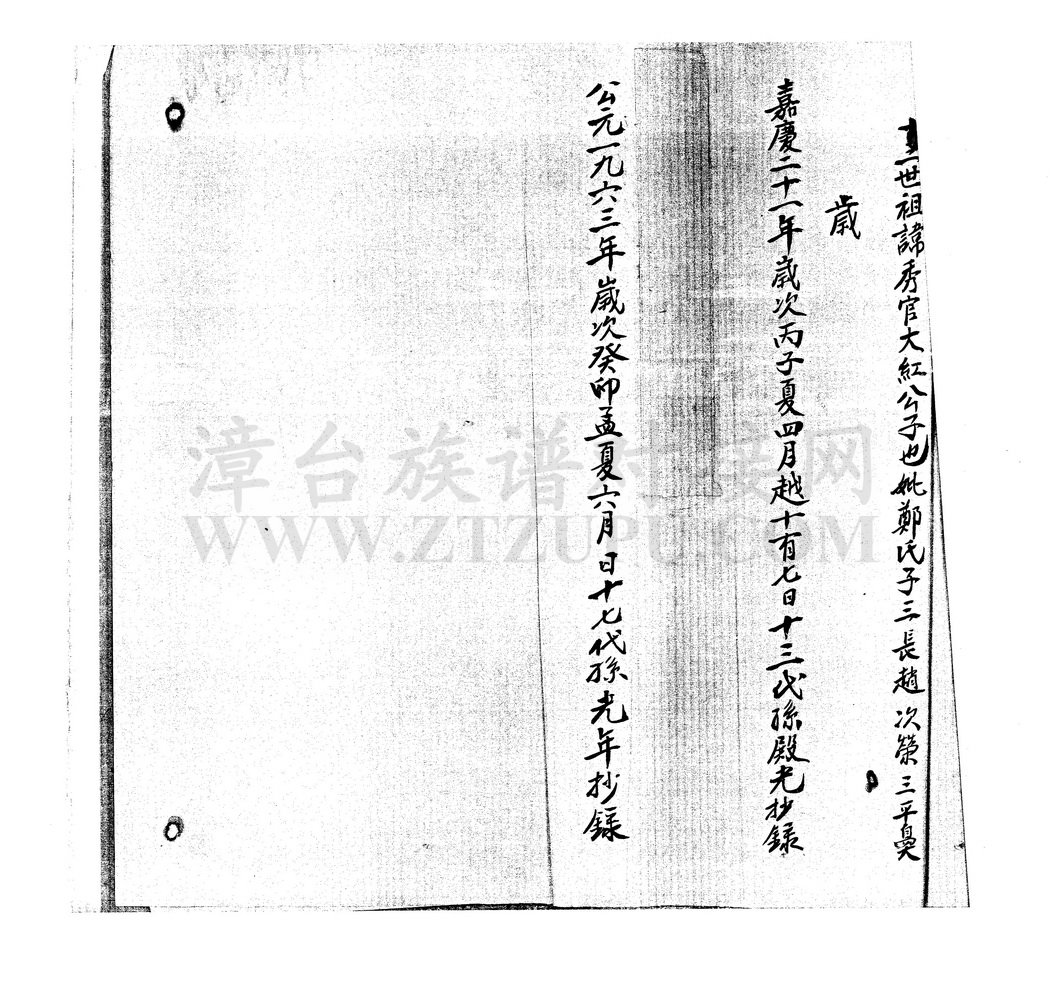 世祖諱秀官大紅公子也妣鄭氏子三長趙次榮三平
歲
嘉慶二十一年歲次丙子夏四月越十有七日十三代孫殿光抄錄
公元一九六三年歲次癸卯孟夏六月日十七代孫光年抄錄
漳台族谱对接网
WWW.ZTZUPU.COM